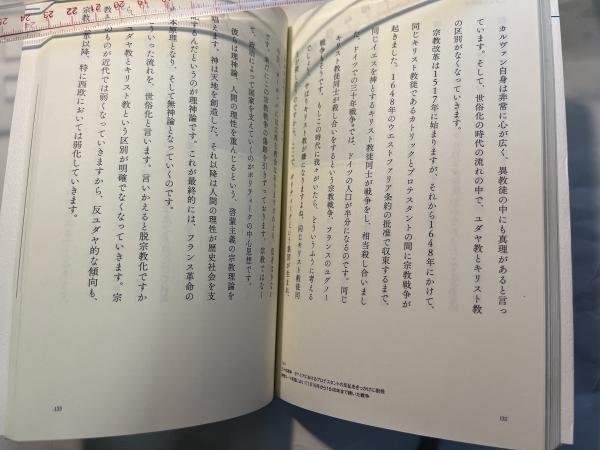 カルヴァン自身は非常に心が広く、異教徒の中にも真理があると言っ
ています。そして、世俗化の時代の流れの中で、ユダヤ教とキリスト教
の区別がなくなっていきます。
宗教改革は1517年に始まりますが、それから1648年にかけて、
同じキリスト教徒であるカトリックとプロテスタントの間に宗教戦争が
起きました。1648年のウエストファリア条約の批准で収束するまで、
同じイエスを神とするキリスト教徒同士が戦争をし、相当殺し合いまし
た。ドイツでの三十年戦争では、ドイツの人口が半分になるのです。同じ
キリスト教徒同士が殺し合いをするという宗教戦争、フランスのユグノー
戦争もそうです。もしこの時代に我々がいたら、どういうふうに考える
でしょう。やはりキリスト教が嫌になりますよね。同じキリスト教徒同
132
よって国家を支えていくのがポリティークの中心思想です。
彼らは理神論、人間の理性を重んじるという、啓蒙主義の宗教理論を
唱えます。神は天地を創造した、それ以降は人間の理性が歴史社会を支
するんだというのが理神論です。これが最終的には、フランス革命の
本原理となり、そして無神論となっていくのです。
いった流れを、世俗化と言います。言いかえると脱宗教化ですか
ダヤ教とキリスト教という区別が明確でなくなっていきます。宗
のものが近代では弱くなっていきますから、反ユダヤ的な傾向も、
革以降、特に西欧においては弱化していきます。
133